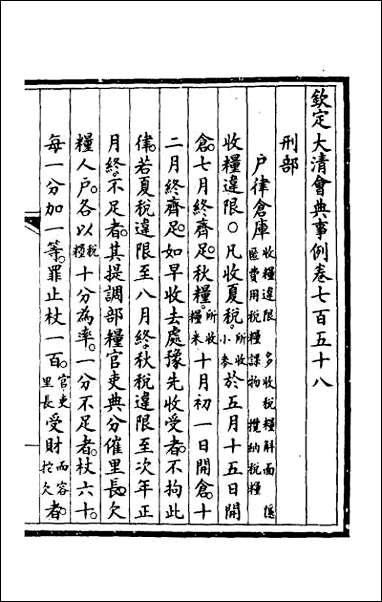 欽定大清會典事例卷七百五十八
刑部
戶律倉庫收糧違限 多收稅糧斛面 隱匿費用稅糧課物 攬納稅糧
收糧違限○凡收夏稅。所收小麥於五月十五日開
倉。七月終齊足。秋糧。所收糧米十月初一日開倉。十
二月終齊足。如早收去處豫先收受者。不拘此
律。若夏稅違限至八月終。秋稅違限至次年正
月終。不足者。其提調部糧官吏典分催里長欠
糧人戶。各以稅糧十分為率。一分不足者。杖六十。
每一分加一等。罪止杖一百。官吏里長受財而容拕欠者。